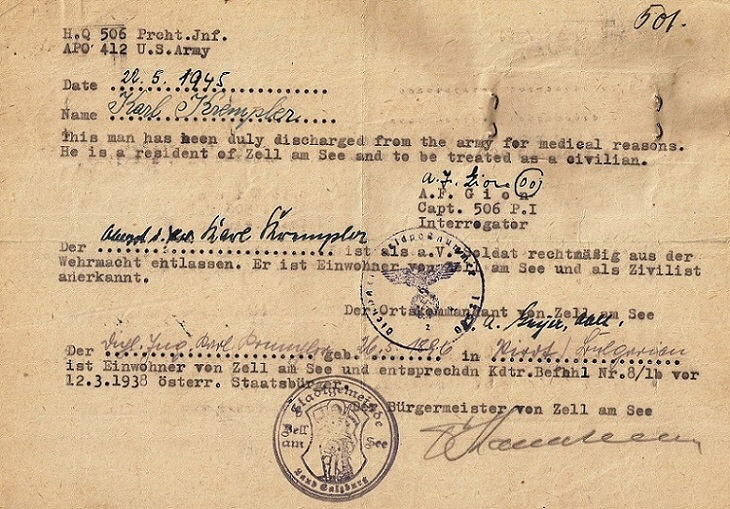 501.
H.Q 506 Prcht.Jnf.
APO 412 U.S.Army
Date 22.5.1945
Name Karl Krempler
This man has been duly discharged from the army for medical reasons.
He is a resident of Zell am See and to be treated as a civilian.
A.F. Gion (OO)
A.F. G i o n
Capt. 506 P.I
Interrogator
Der Oberst d. Karl Krempler ist als a.V. Soldat rechtmäßig aus der
Wehrmacht entlassen. Er ist Einwohner von Zell am See und als Zivilist
anerkannt.
Der Ortskommandant von Zell am See
Der Dipl. Ing. Karl Krempler geb. 26.5.1896 in Pirot/Bulgarien
ist Einwohner von Zell am See und entsprechdn Kdtr.Befbhl Nr.8/1b vor
12.3.1938 österr. Staatsbürger.
Der Bürgermeister von Zell am See
Stadtgemeinde
Zell am See
Land Salzburg